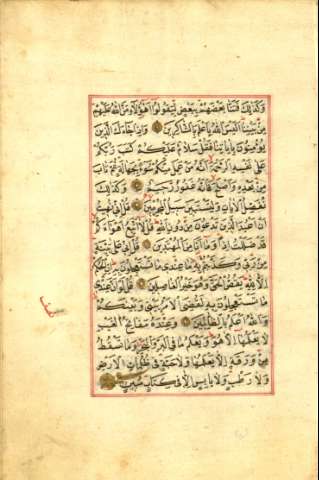 وَكَذٰلِكَ فَتَنَّا بَعْضَهُمْ بِبَعْضٍ لِيَقُولُوا اَهٰٓؤُلَاءِ مَنَّ اللّٰهُ عَلَيْهِمْ
مِنْ بَيْنِنَا اَلَيْسَ اللّٰهُ بِاَعْلَمَ بِالشَّاكِرِينَ وَاِذَا جَاءَكَ الَّذِينَ
يُؤْمِنُونَ بِاٰيَاتِنَا فَقُلْ سَلَامٌ عَلَيْكُمْ كَتَبَ رَبُّكُمْ
عَلٰى نَفْسِهِ الرَّحْمَةَ اَنَّهُ مَنْ عَمِلَ مِنْكُمْ سُوءًا بِجَهَالَةٍ ثُمَّ تَابَ
مِنْ بَعْدِهِ وَاَصْلَحَ فَاَنَّهُ غَفُورٌ رَحِيمٌ وَكَذٰلِكَ
نُفَصِّلُ الْاٰيَاتِ وَلِتَسْتَبِينَ سَبِيلُ الْمُجْرِمِينَ قُلْ اِنِّي نُهِيتُ
اَنْ اَعْبُدَ الَّذِينَ تَدْعُونَ مِنْ دُونِ اللّٰهِ قُلْ لَا اَتَّبِعُ اَهْوَاءَكُمْ
قَدْ ضَلَلْتُ اِذًا وَمَا اَنَا مِنَ الْمُهْتَدِينَ قُلْ اِنِّي عَلٰى بَيِّنَةٍ
مِنْ رَبِّي وَكَذَّبْتُمْ بِهِ مَا عِنْدِي مَا تَسْتَعْجِلُونَ بِهِ اِنِ الْحُكْمُ
اِلَّا لِلّٰهِ يَقُصُّ الْحَقَّ وَهُوَ خَيْرُ الْفَاصِلِينَ قُلْ لَوْ اَنَّ عِنْدِي
مَا تَسْتَعْجِلُونَ بِهِ لَقُضِيَ الْاَمْرُ بَيْنِي وَبَيْنَكُمْ
وَاللّٰهُ اَعْلَمُ بِالظَّالِمِينَ وَعِنْدَهُ مَفَاتِحُ الْغَيْبِ
لَا يَعْلَمُهَا اِلَّا هُوَ وَيَعْلَمُ مَا فِي الْبَرِّ وَالْبَحْرِ وَمَا تَسْقُطُ
مِنْ وَرَقَةٍ اِلَّا يَعْلَمُهَا وَلَا حَبَّةٍ فِي ظُلُمَاتِ الْاَرْضِ
وَلَا رَطْبٍ وَلَا يَابِسٍ اِلَّا فِي كِتَابٍ مُبِينٍ